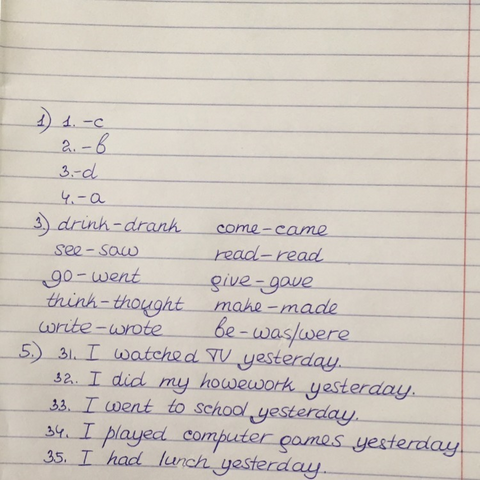 1) 1. -c
2. -b
3. -d
4. -a
3.) drink-drank come-came
see-saw read-read
go-went give-gave
think-thought make-made
write-wrote be-was/were
5.) 31. I watched TV yesterday.
32. I did my howework yesterday.
33. I went to school yesterday.
34. I played computer games yesterday.
35. I had lunch yesterday.